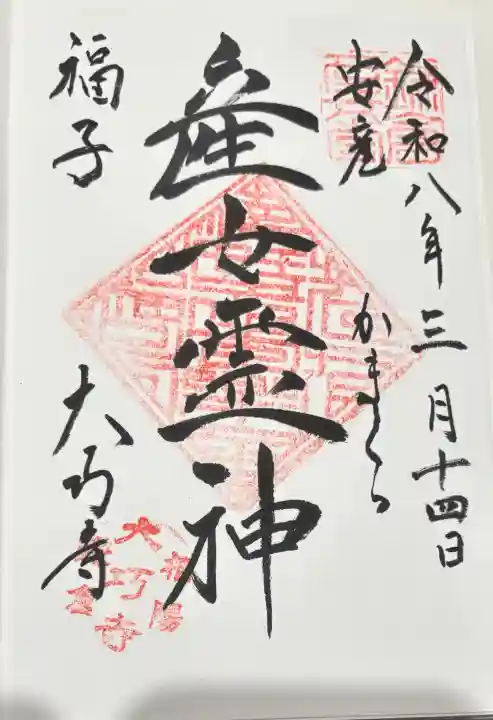 令和八年三月十四日
安産
かまくら
産女霊神
福子
大巧寺
相陽
大巧寺